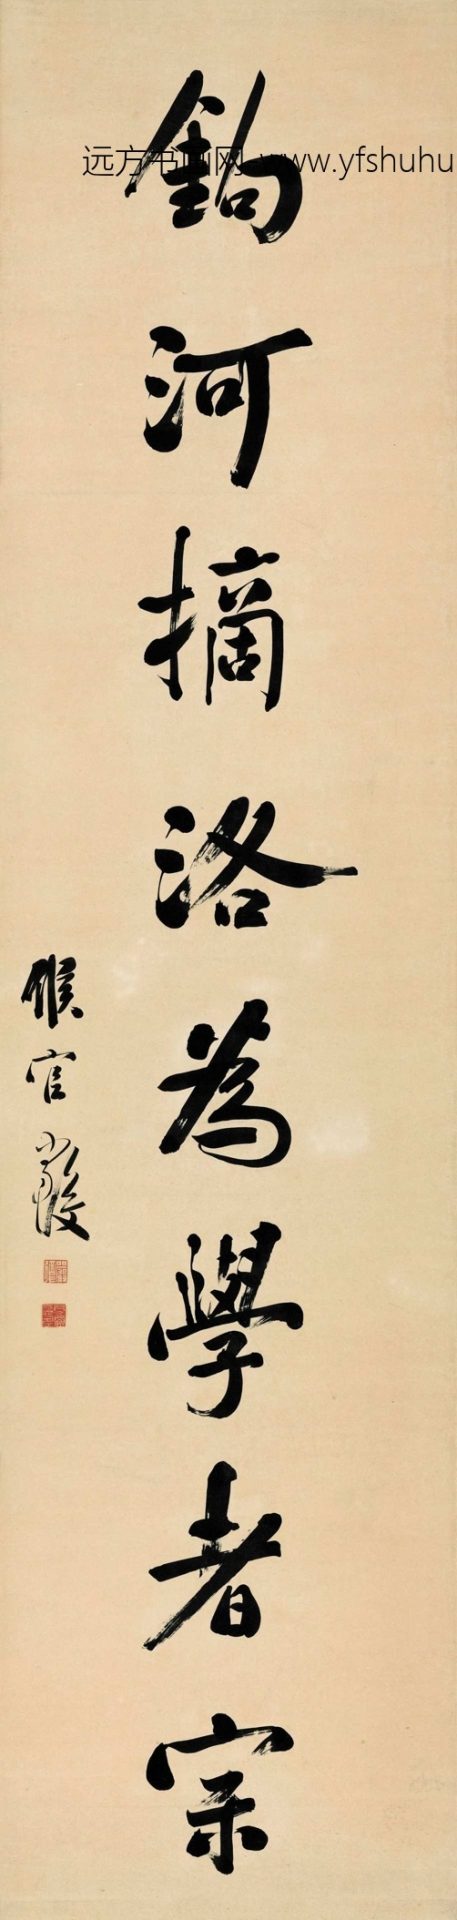 远方书画网 www.yfshuhu
鉤河摘洛為學者宗
侯官嚴復